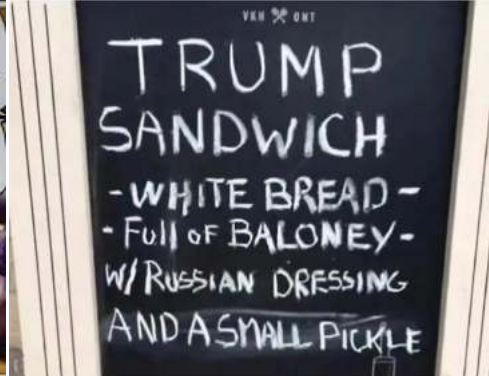 VKH ONT
TRUMP
SANDWICH
- WHITE BREAD -
- Full OF BALONEY -
W/ RUSSIAN DRESSING
AND A SMALL PICKLE